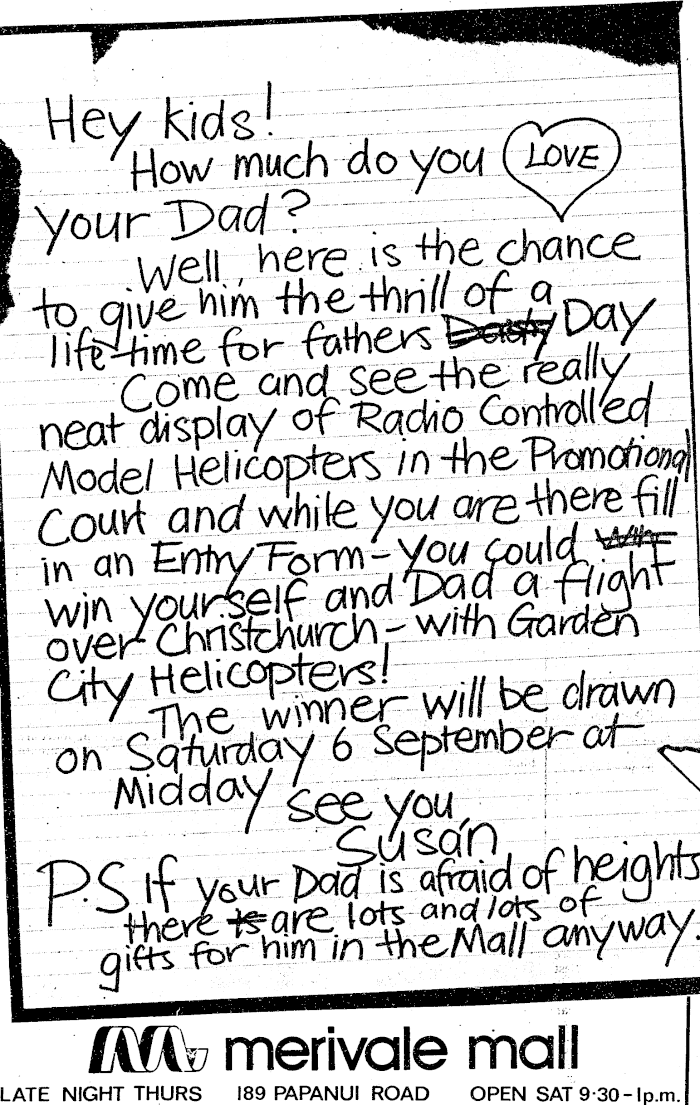 Hey kids!
How much do you LOVE
your Dad?
Well, here is the chance
to give him the thrill of a
life-time for fathers Day
Come and see the really
neat display of Radio Controlled
Model Helicopters in the Promotional
Court and while you are there fill
in an Entry Form - you could
win yourself and Dad a flight
over Christchurch - with Garden
City Helicopters!
The winner will be drawn
on Saturday 6 September at
Midday
see you,
Susan
P.S If your Dad is afraid of heights
there is are lots and lots of
gifts for him in the Mall anyway.
merivale mall
LATE NIGHT THURS 189 PAPANUI ROAD OPEN SAT 9·30-1p.m.